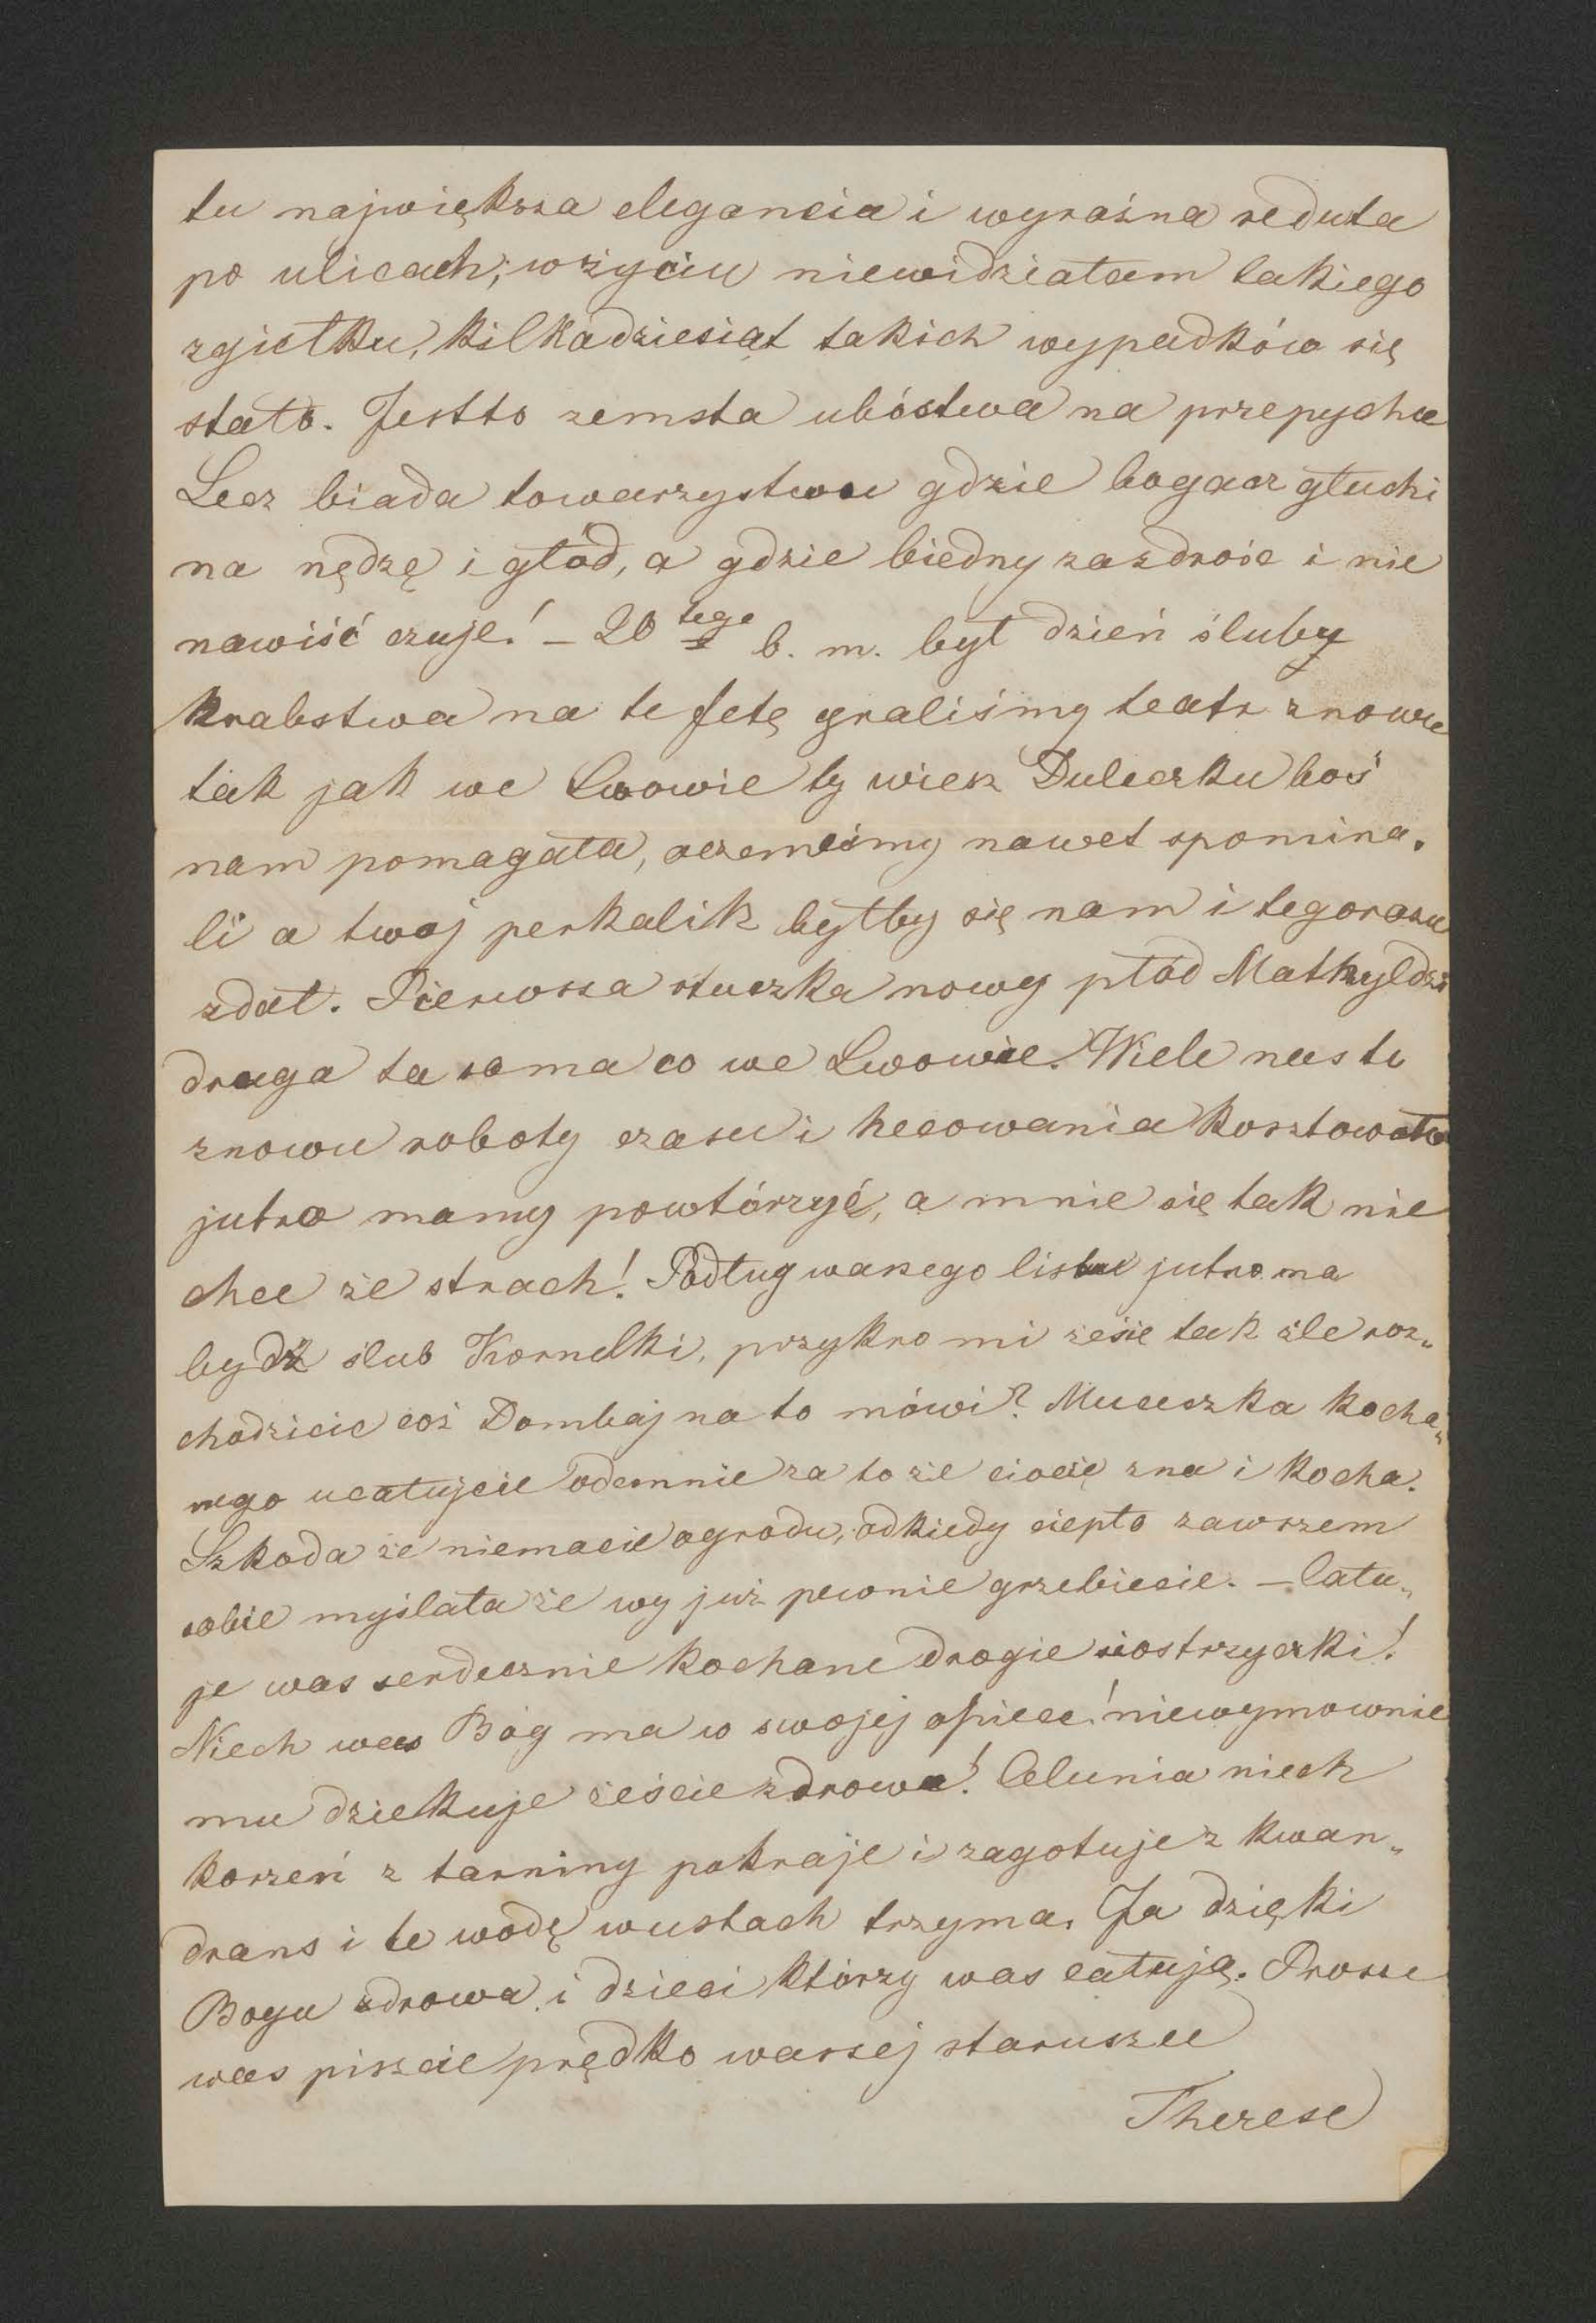 tu największa elegancia i wyraźna reduta
po ulicach; wżyciu niewidziałam takiego
zgiełku, kilkadziesiąt takich wypadków się
stało. Jestto zemsta ubóstwa na przepychu
Lecz biada towarzystwu gdzie bogacz głuchi
na nędzę i głód, a gdzie biedny zazdrość i nie
nawiść czuje! – 20 tego b. m. był dzień śluby
hrabstwa na te fetę graliśmy teatr znowu
tak jak we Lwowie ty wiesz Duleczku boś
nam pomagała, oczemeśmy nawet spomina„
li a twoj perkalik byłby się nam i tegorazu
zdał. Pierwsza stuczka nowy płód Mathyldzi
druga ta sama co we Lwowie. Wiele nas tu
znowu roboty czasu i hecowania kosztowało
jutro mamy powtórzyć, a mnie się tak nie
chce że strach! Podług waszego listu jutro ma
bydź slub Kornelki, przykro mi żesię tak źle roz„
chodzicie coż Dombaj na to mówi? Muceczka kocha„
nego ucałujcie odemnie za to że ciocię zna i kocha.
Szkoda że niemacie ogrodu, odkiedy ciepło zawszem
sobie myślała że wy już pewnie grzebiecie. – Cału„
je was serdecznie kochane drogie siostrzyczki!
Niech was Bóg ma w swojej opiece! niewymownie
mu dziekuje żeście zdrowe! Celunia niech
korzeń z tarniny pokraje i zagotuje z kwan„
drans i te wodę wustach trzyma. Ja dzięki
Bogu zdrowa i dzieci którzy was całują. Prosze
was piszcie prędko waszej staruszce
Therese